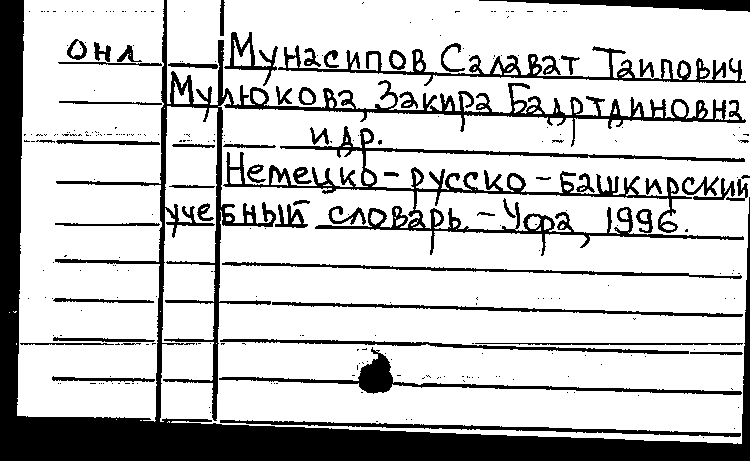 онл Мунасипов, Салават Таипович
Мулюкова, Закира Бадртдиновна
и др.
Немецко-русско-башкирский
учебный словарь. - Уфа, 1996.